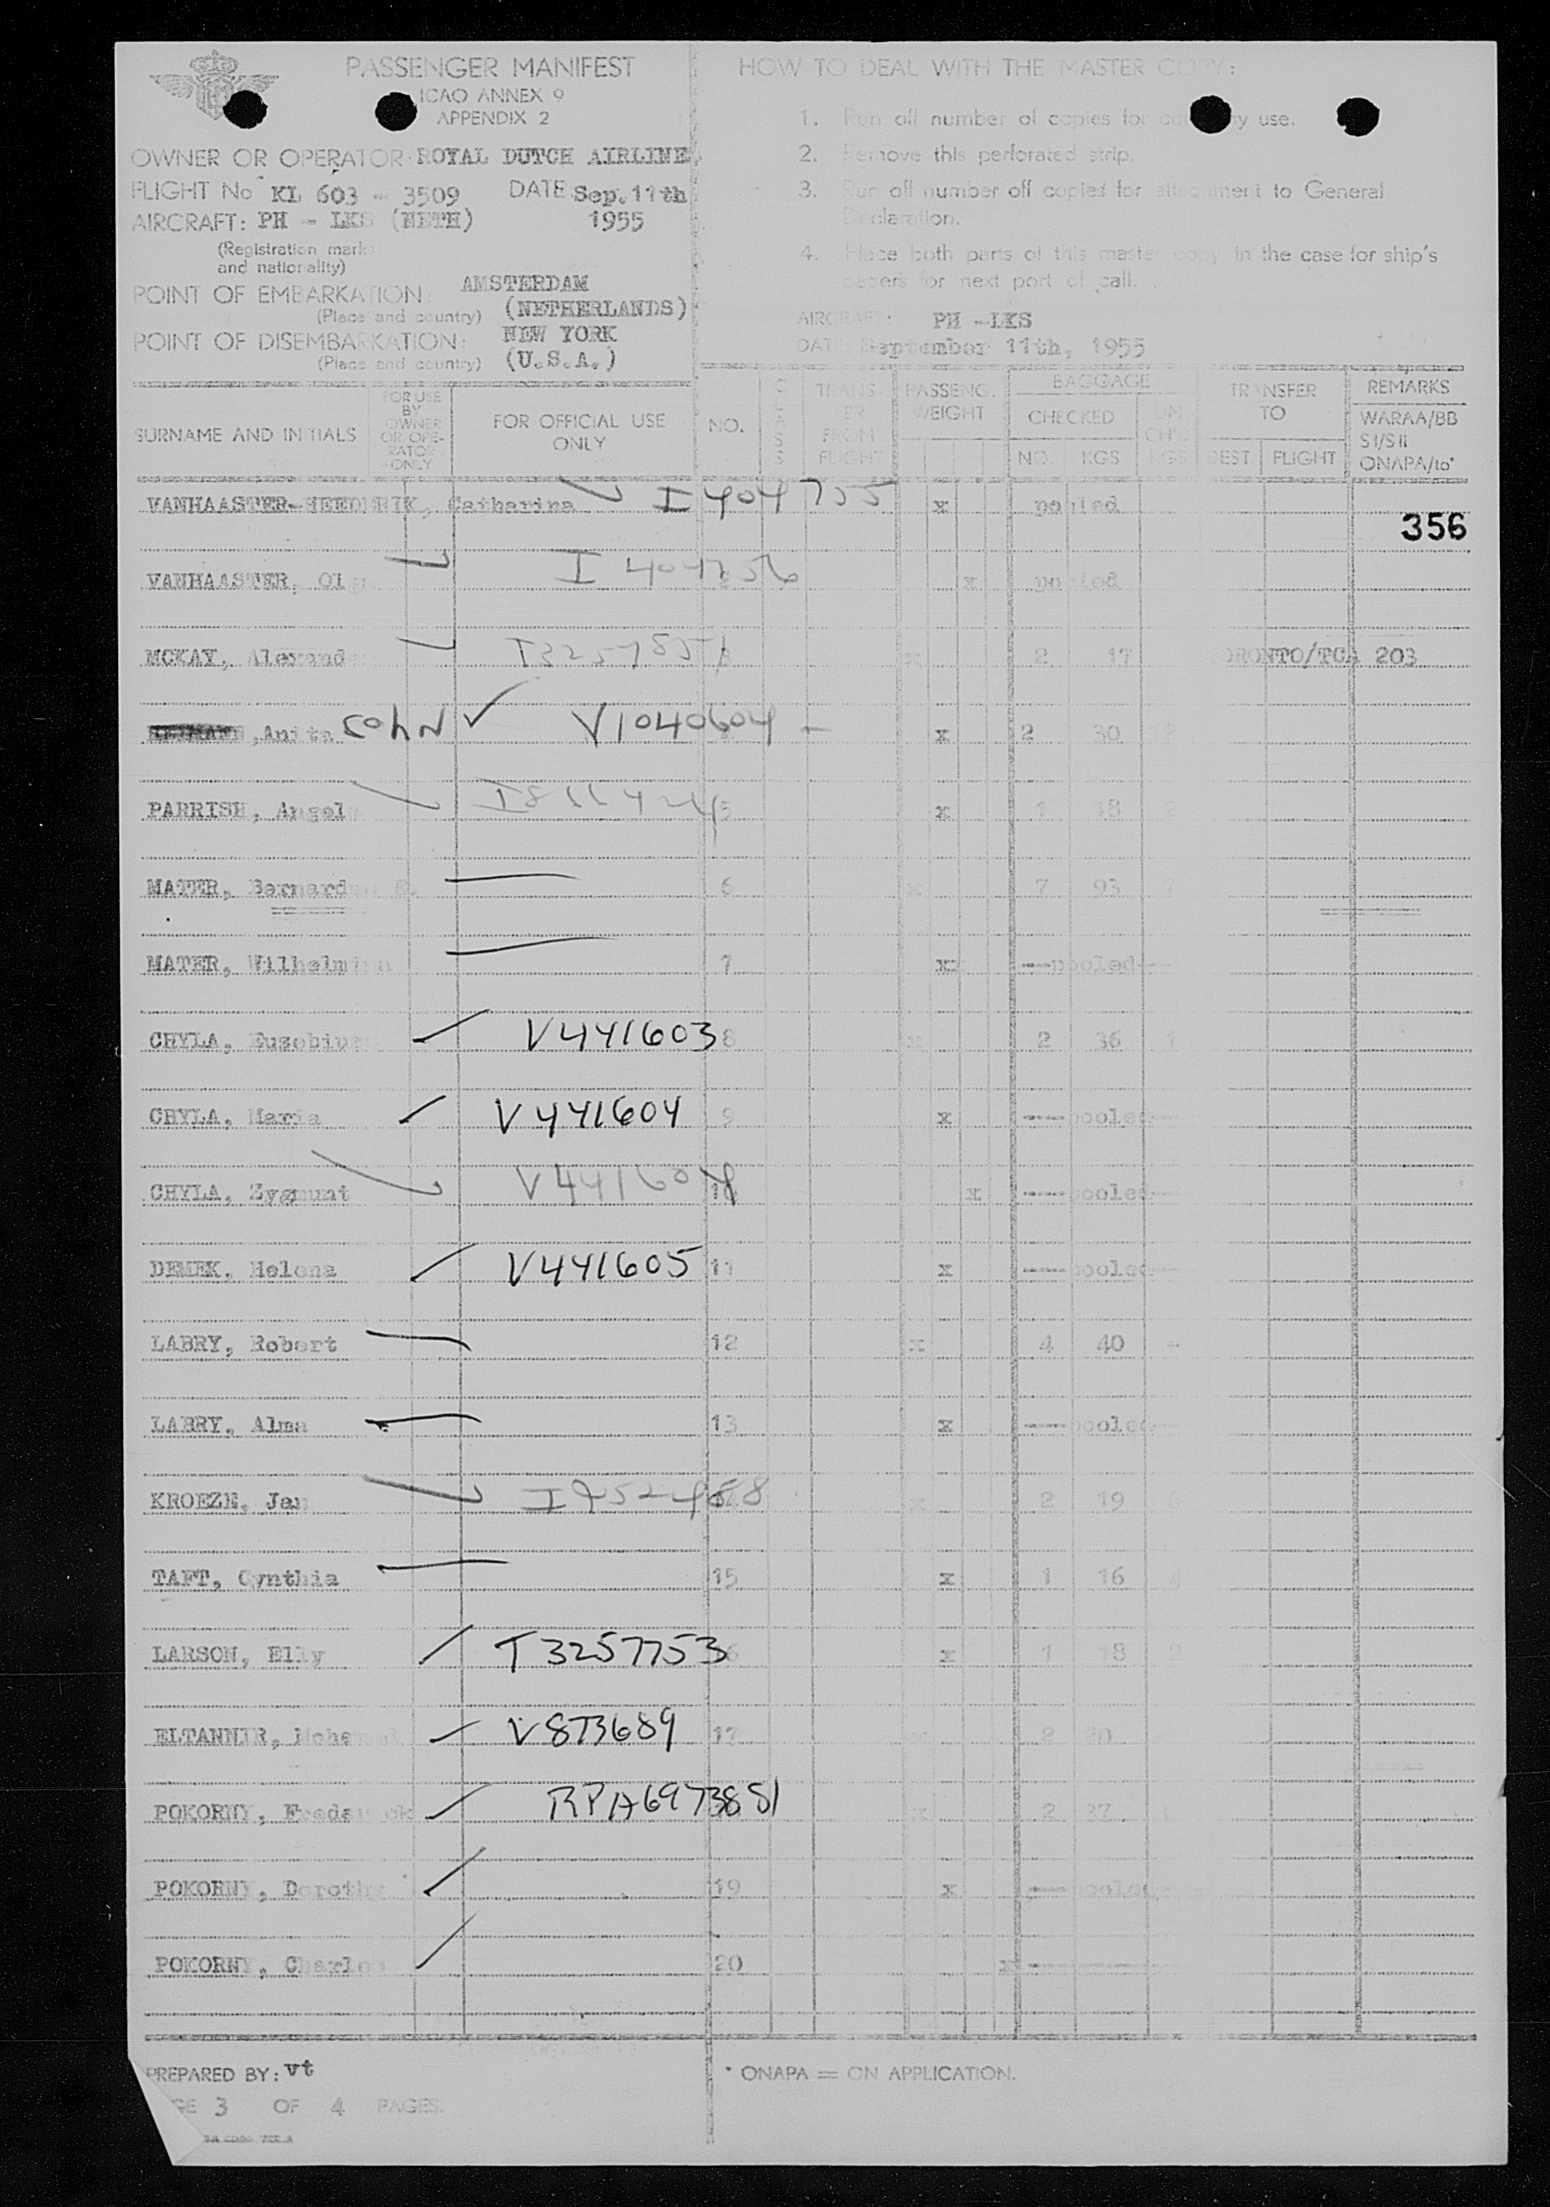 PASSENGER MANIFEST
ICAO ANNEX 9
APPENDIX 2
OWNER OR OPERATOR: ROYAL DUTCH AIRLINE
FLIGHT No KL 603 - 3509 DATE Sep. 11th
AIRCRAFT: PH - LKS (NETH) 1955
(Registration marks
and nationality)
POINT OF EMBARKATION: AMSTERDAM
(Place and country) (NETHERLANDS)
POINT OF DISEMBARKATION: NEW YORK
(Place and country) (U.S.A.)
HOW TO DEAL WITH THE MASTER COPY:
1. Run off number of copies for company use.
2. Remove this perforated strip.
3. Run off number off copies for attachment to General
Declaration.
4. Place both parts of this master copy in the case for ship's
papers for next port of call.
AIRCRAFT: PH -LKS
DATE September 11th, 1955
SURNAME AND INITIALS
FOR USE BY OWNER OR OPE- RATOR ONLY
FOR OFFICIAL USE ONLY
NO.
CLASS
TRANS- FER FROM FLIGHT
PASSENG. WEIGHT
BAGGAGE
CHECKED
NO. KGS
UN CH'D
KGS
TRANSFER TO
DEST. FLIGHT
REMARKS
WARAA/BB
SI/SII
ONAPA/to*
VANHAASTER-HEEDERIK, Catharina I 404755 x pooled
356
VANHAASTER, Olga I 404756 x pooled
MCKAY, Alexander T3257857 3 x 2 17 TORONTO/TCA 203
,Anita COHN V1040604 - x 2 30 12
PARRISH, Angela 5 x 1 18
MATER, Bernardus 6 x 7 93 7
MATER, Wilhelmina 7 x ---pooled---
CHYLA, Euzebiusz V441603 8 x 2 36 1
CHYLA, Maria V441604 9 x ----pooled---
CHYLA, Zygmunt V441604 10 x ----pooled---
DEMEK, Helena V441605 11 x ----pooled---
LABRY, Robert 12 x 4 40 -
LABRY, Alma 13 x ----pooled---
KROEZE, Jan x 2 19
TAFT, Cynthia 15 x 1 16 4
LARSON, Elly T3257753 16 x 1 18 2
ELTANNIR, Mohamed V873689 17 x 2 20
POKORNY, Frederick RPA6973881 x 2 37
POKORNY, Dorothy 19 x ----pooled
POKORNY, Charles 20 x
PREPARED BY: vt
PAGE 3 OF 4 PAGES.
* ONAPA = ON APPLICATION.